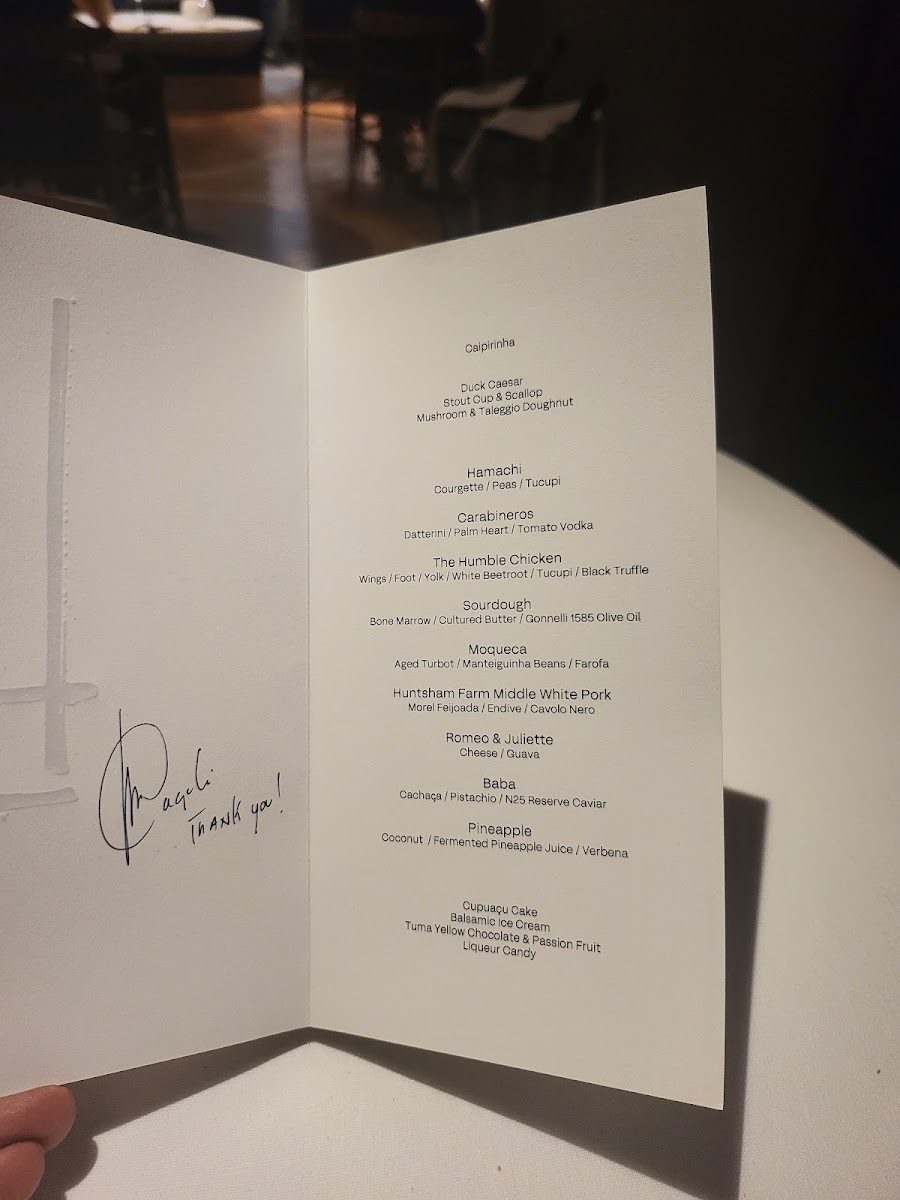 Caipirinha
Duck Caesar
Stout Cup & Scallop
Mushroom & Taleggio Doughnut
Hamachi
Courgette / Peas / Tucupi
Carabineros
Datterini / Palm Heart / Tomato Vodka
The Humble Chicken
Wings / Foot / Yolk / White Beetroot / Tucupi / Black Truffle
Sourdough
Bone Marrow / Cultured Butter / Gonnelli 1585 Olive Oil
Moqueca
Aged Turbot / Manteiguinha Beans / Farofa
Huntsham Farm Middle White Pork
Morel Feijoada / Endive / Cavolo Nero
Romeo & Juliette
Cheese / Guava
Baba
Cachaça / Pistachio / N25 Reserve Caviar
Pineapple
Coconut / Fermented Pineapple Juice / Verbena
Cupuaçu Cake
Balsamic Ice Cream
Tuma Yellow Chocolate & Passion Fruit
Liqueur Candy
THANK you!